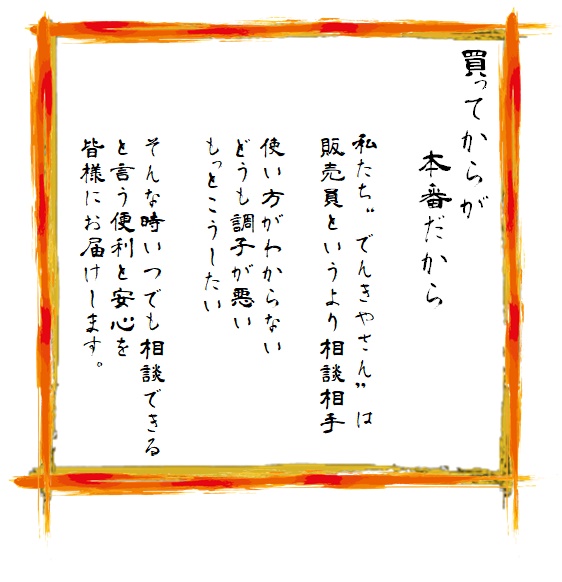 買ってからが
本番だから
私たち”でんきやさん”は
販売員というより相談相手
使い方がわからない
どうも調子が悪い
もっとこうしたい
そんな時いつでも相談できる
と言う便利と安心を
皆様にお届けします。